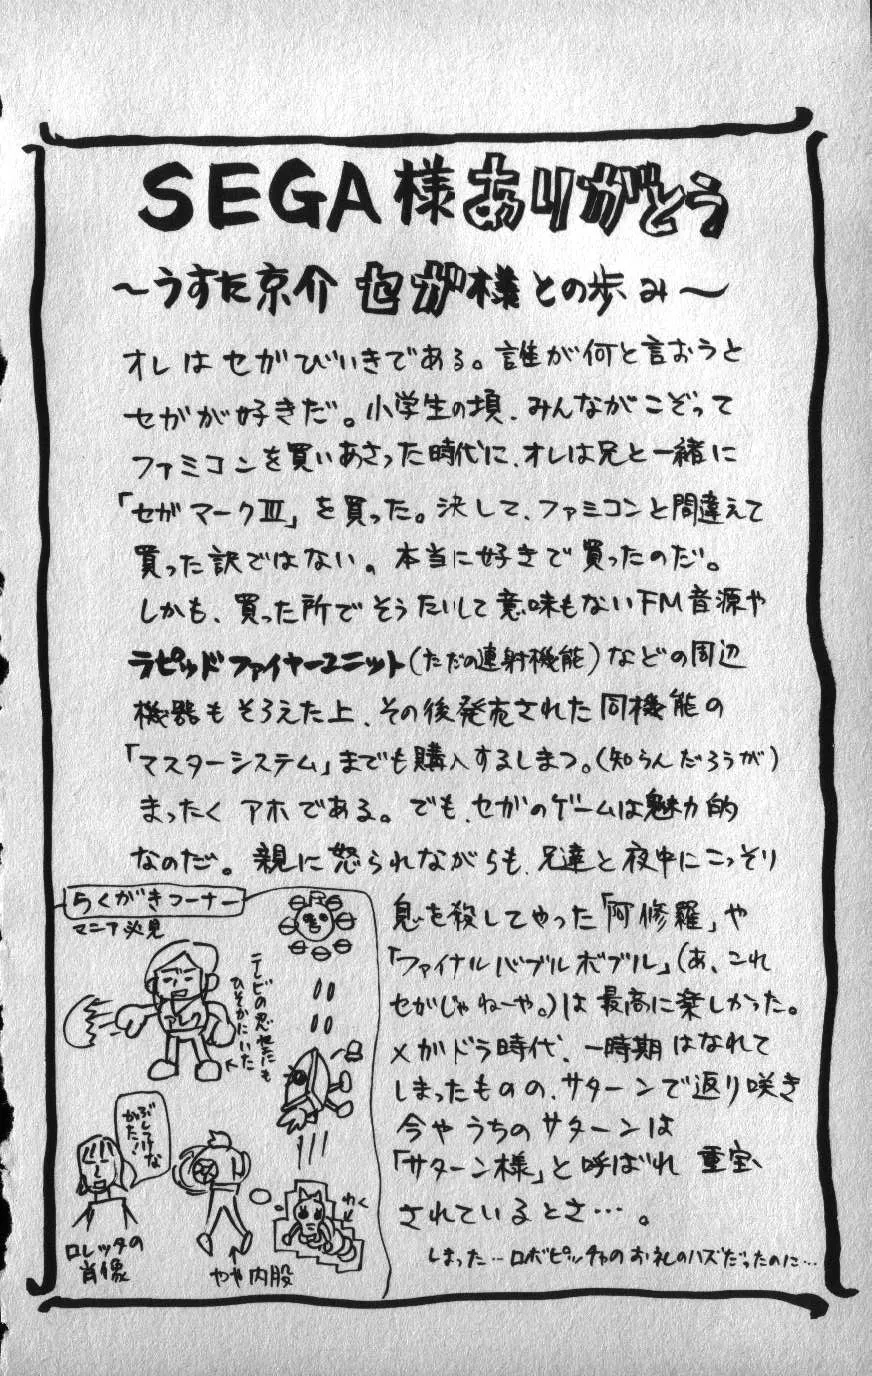 SEGA様ありがとう
～うすた京介 セガ様との歩み～
オレはセガびいきである。誰が何と言おうと
セガが好きだ。小学生の頃、みんながこぞって
ファミコンを買いあさった時代に、オレは兄と一緒に
「セガマークⅢ」を買った。決して、ファミコンと間違えて
買った訳ではない。本当に好きで買ったのだ。
しかも、買った所でそうたいして意味もないFM音源や
ラピッドファイヤーユニット(ただの連射機能)などの周辺
機器もそろえた上、その後発売された同機能の
「マスターシステム」までも購入するしまつ。(知らんだろうが)
まったくアホである。でも、セガのゲームは魅力的
なのだ。親に怒られながらも、兄達と夜中にこっそり
息を殺してやった「阿修羅」や
「ファイナルバブルボブル」(あ、これ
セガじゃねーや。)は最高に楽しかった。
メガドラ時代、一時期はなれて
しまったものの、サターンで返り咲き
今やうちのサターンは
「サターン様」と呼ばれ重宝
されているとさ…。
しまった…ロボピッチャのお礼のハズだったのに…
らくがきコーナー
マニア必見
テレビの忍せにも
ひそかにいた
アレ
ぶしつけな
がたー!
ロレッタの
肖像
やや内股
わく